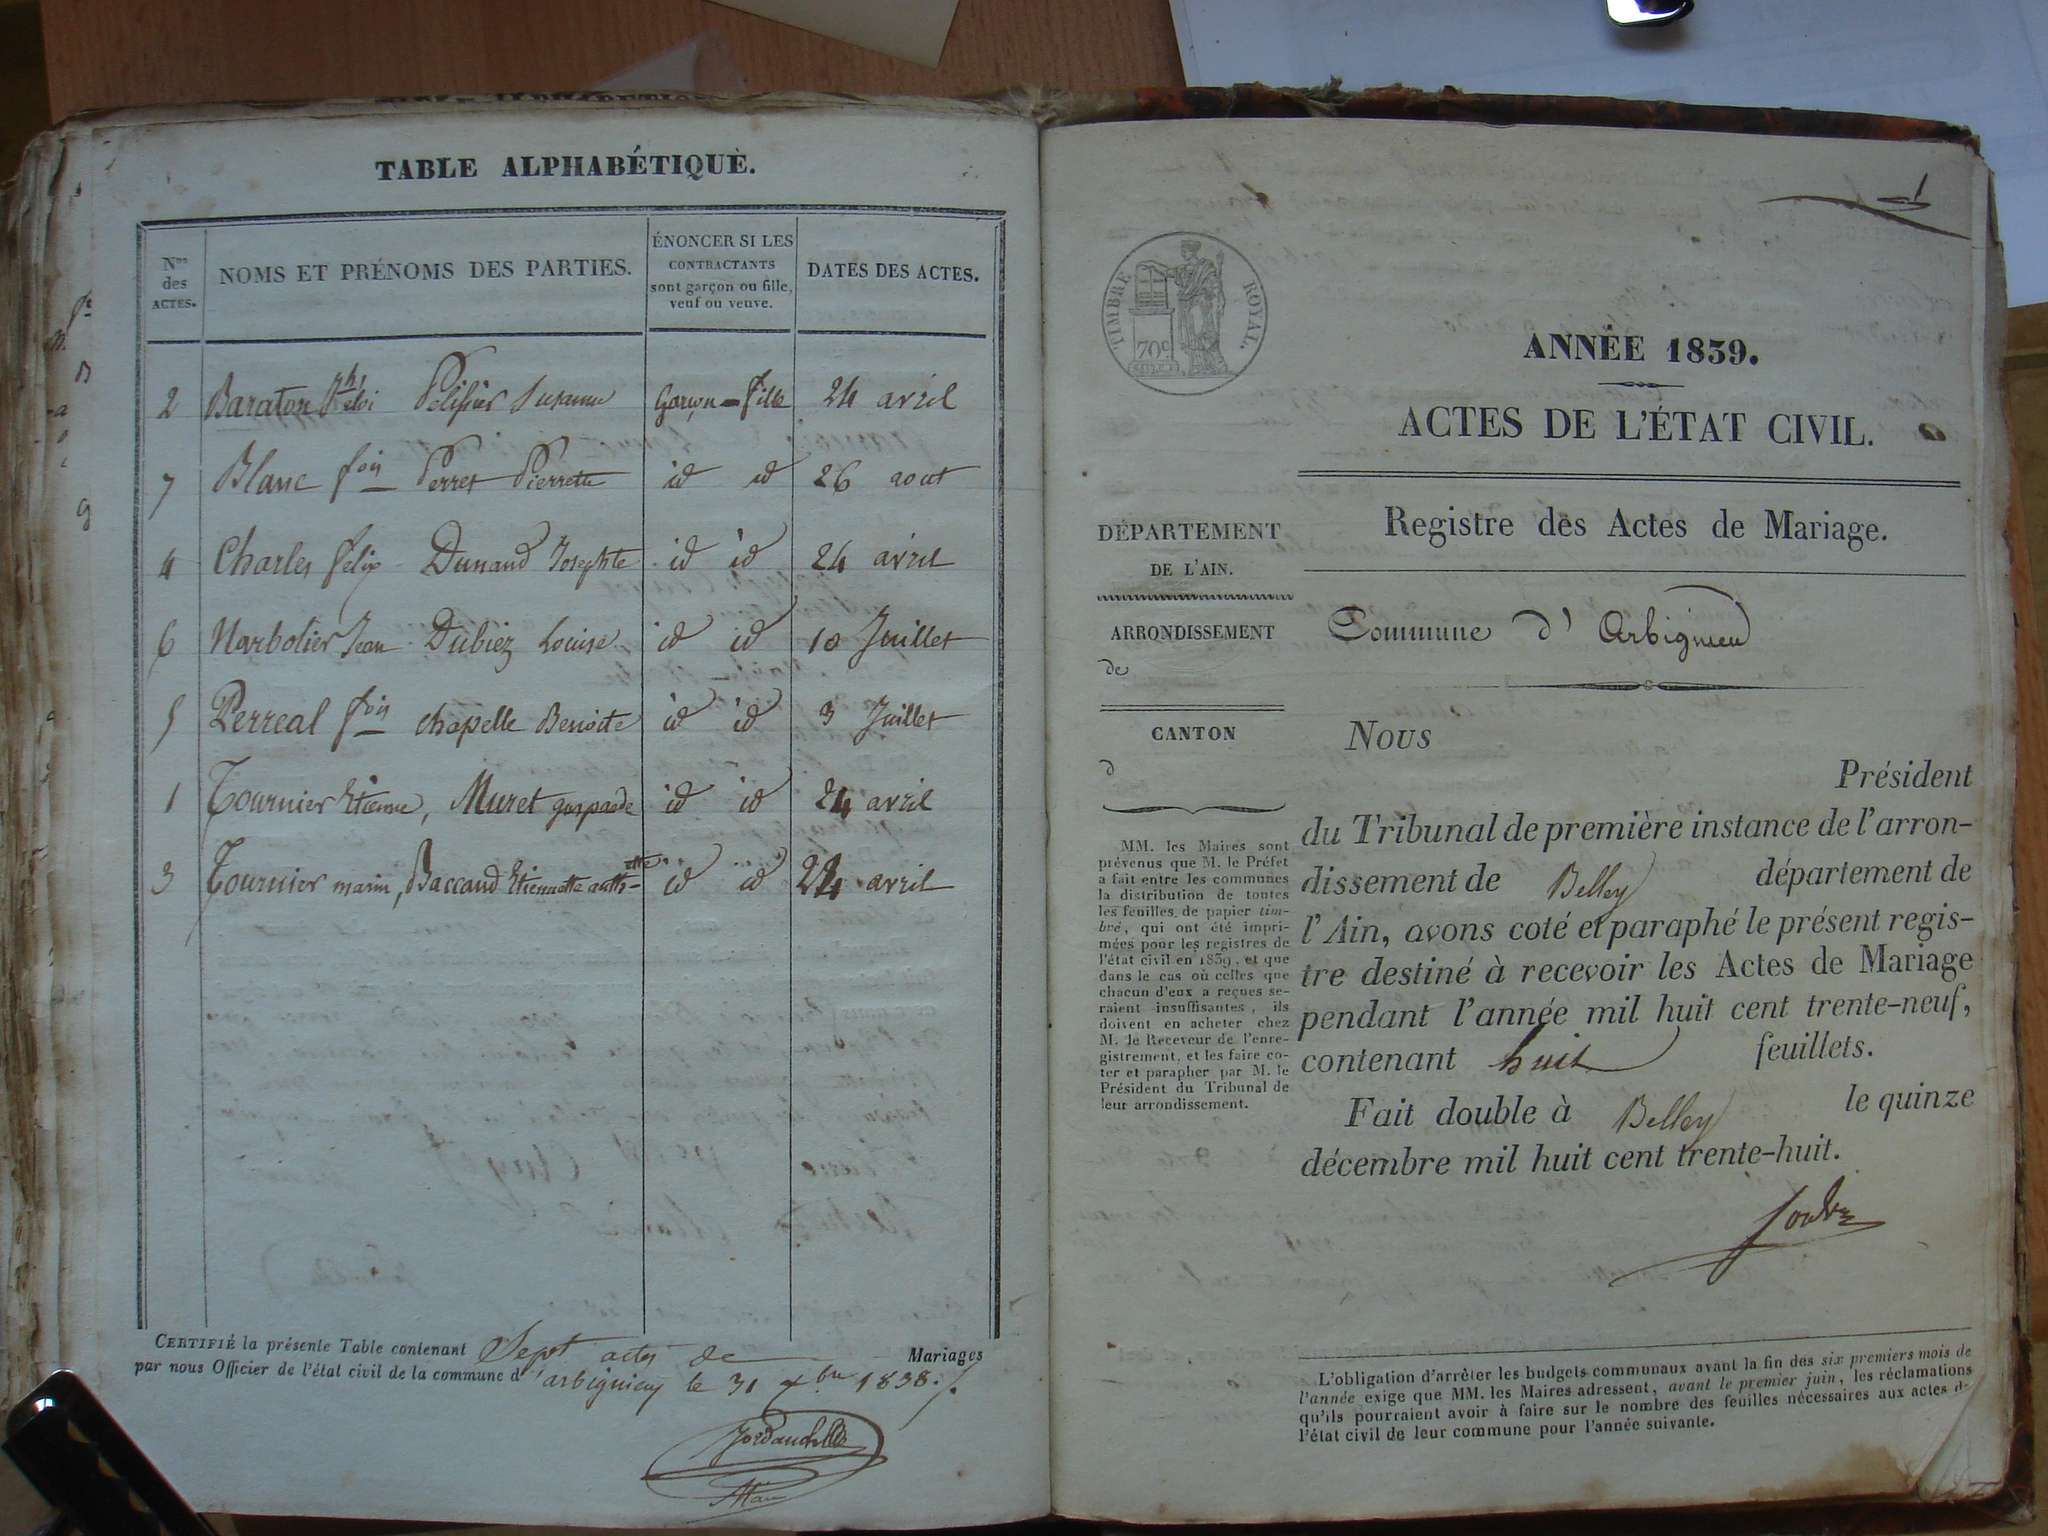 TABLE ALPHABÉTIQUE.
Nos des ACTES.
NOMS ET PRÉNOMS DES PARTIES.
ÉNONCER SI LES CONTRACTANTS sont garçon ou fille, veuf ou veuve.
DATES DES ACTES.
2 Baraton Pelissier Susanne Garçon - Fille 24 avril
7 Blanc fois Perret Pierrette id id 26 aout
4 Charles felix Dunand Josephte id id 24 avril
6 Marbolier Jean Dubiez Louise id id 10 Juillet
5 Perreal fois chapelle Benoite id id 3 Juillet
1 Tournier Etienne, Muret gasparde id id 24 avril
3 Tournier marin, Baccaud Etiennette id id 24 avril
CERTIFIÉ la présente Table contenant Sept actes de Mariages
par nous Officier de l'état civil de la commune d'arbignieu le 31 xbre 1838.
1
TIMBRE ROYAL.
70c
ANNÉE 1839.
ACTES DE L'ÉTAT CIVIL.
Registre des Actes de Mariage.
DÉPARTEMENT
DE L'AIN.
ARRONDISSEMENT
de
CANTON
d
Commune d'Arbignieu
MM. les Maires sont
prévenus que M. le Préfet
a fait entre les communes
la distribution de toutes
les feuilles de papier tim-
bré, qui ont été impri-
mées pour les registres de
l'état civil en 1839, et que
dans le cas où celles que
chacun d'eux a reçues se-
raient insuffisantes, ils
doivent en acheter chez
M. le Receveur de l'enre-
gistrement, et les faire co-
ter et parapher par M. le
Président du Tribunal de
leur arrondissement.
Nous
Président
du Tribunal de première instance de l'arron-
dissement de Belley département de
l'Ain, avons coté et paraphé le présent regis-
tre destiné à recevoir les Actes de Mariage
pendant l'année mil huit cent trente-neuf,
contenant huit feuillets.
Fait double à Belley le quinze
décembre mil huit cent trente-huit.
L'obligation d'arrêter les budgets communaux avant la fin des six premiers mois de
l'année exige que MM. les Maires adressent, avant le premier juin, les réclamations
qu'ils pourraient avoir à faire sur le nombre des feuilles nécessaires aux actes d-
l'état civil de leur commune pour l'année suivante.